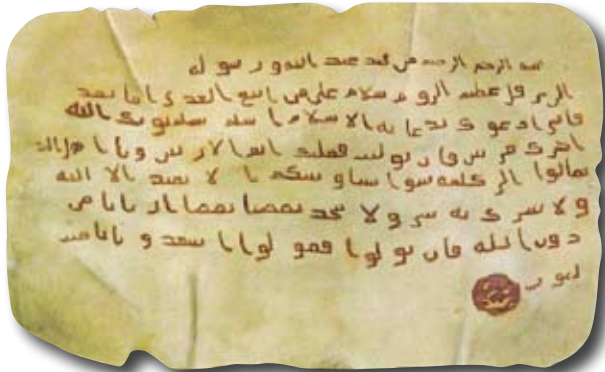 بسم الرحم الرحيم من محمد عبد الله ورسوله
الى هرقل عظيم الروم سلام على من اتبع الهدى اما بعد
فانى ادعوك بدعاية الاسلام اسلم تسلم يوتك الله
اجرك مرتين فان توليت فعليك اثم الاريسين ويا اهل الك
تعالوا الى كلمة سوا بيننا وبينكم ا لا نعبد الا الله
ولا نشرك به شى ولا يتخذ بعضنا بعضا اربابا من
دون الله فان تولوا فقولوا اشهدو بانا مس
لمون